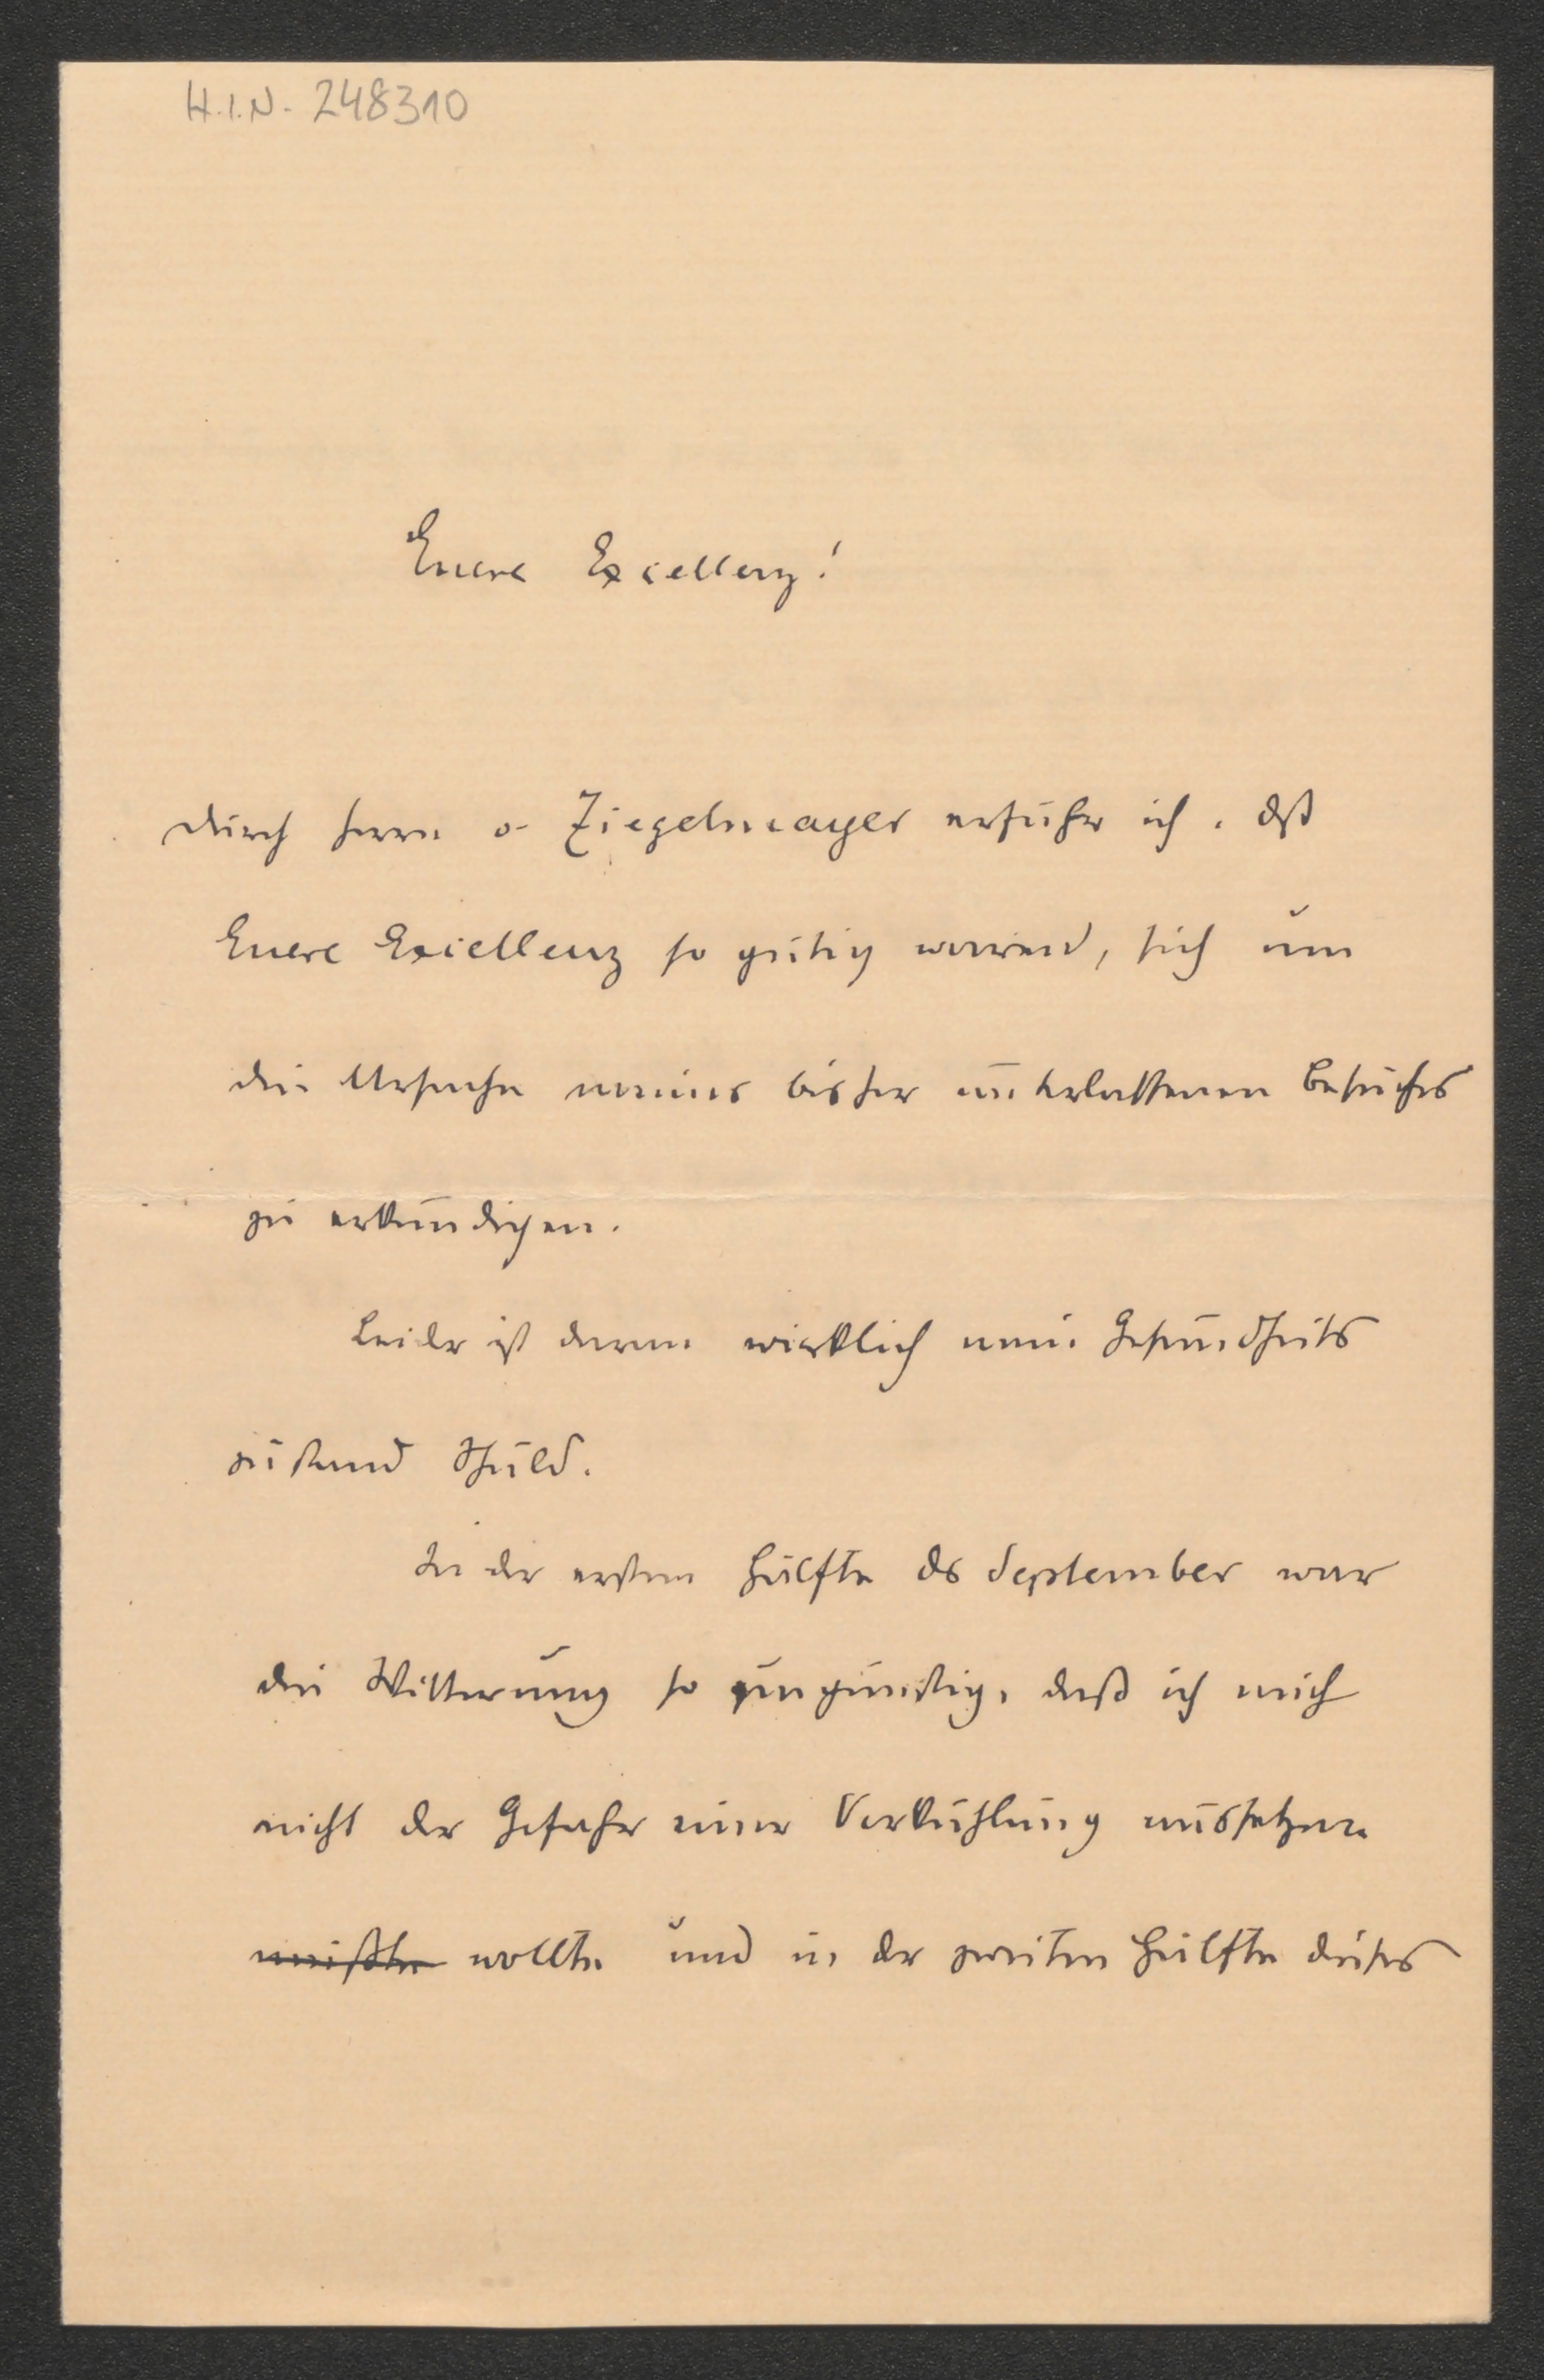 H.I.N. 248310
Euere Excellenz!
durch Herrn v. Ziegelmayer erfuhr ich, dß
Euere Excellenz so gütig waren, sich um
die Ursache meines bisher unterlassenen Besuches
zu erkundigen.
Leider ist daran wirklich mein Gesundheits
zustand Schuld.
In der ersten Hälfte des September war
die Witterung so ungünstig, daß ich mich
nicht der Gefahr einer Verkühlung aussetzen
mußte wollte und in der zweiten Hälfte dieses